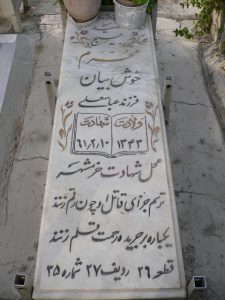 خوش بیان
فرزند عباسعلی
ولادت شهادت
۱۳۴۳ ۶۱/۲/۱۰
محل شهادت خرمشهر
ترسم جزای قاتل او چون رقم زنند
یکباره بر جریده رحمت قلم زنند
قطعه ۲۶ ردیف ۲۷ شماره ۲۵